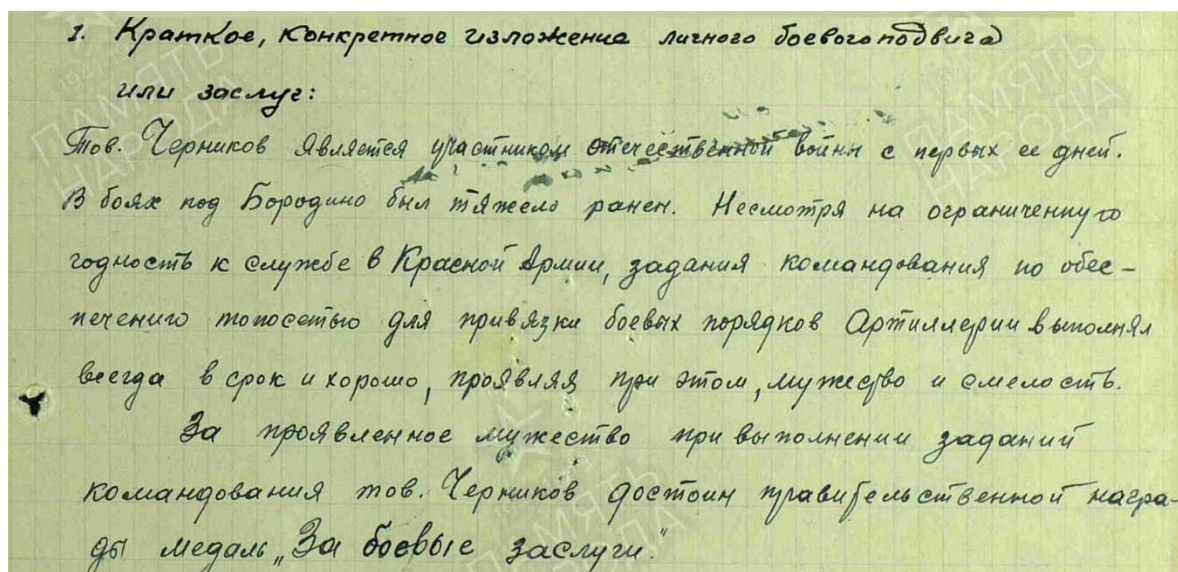 1. Краткое, конкретное изложение личного боевого подвига
или заслуг:
Тов. Черников является участником отечественной войны с первых ее дней.
В боях под Бородино был тяжело ранен. Несмотря на ограниченную
годность к службе в Красной Армии, задания командования по обес-
печению топосетью для привязки боевых порядков Артиллерии выполнял
всегда в срок и хорошо, проявляя при этом, мужество и смелость.
За проявленное мужество при выполнении заданий
командования тов. Черников достоин правительственной награ-
ды медаль „За боевые заслуги."
ПАМЯТЬ
НАРОДА
ПАМЯТЬ
НАРОДА